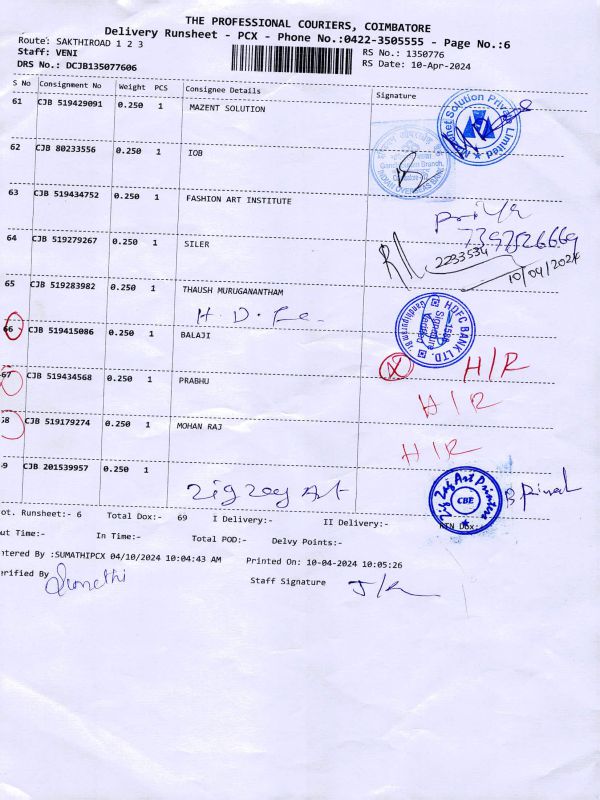 THE PROFESSIONAL COURIERS, COIMBATORE
Delivery Runsheet - PCX - Phone No.:0422-3505555 - Page No.:6
Route: SAKTHIROAD 1 2 3
RS No.: 1350776
Staff: VENI
RS Date: 10-Apr-2024
DRS No.: DCJB135077606
S No Consignment No Weight PCS Consignee Details Signature
61 CJB 519429091 0.250 1 MAZENT SOLUTION
Solution Private Limited
62 CJB 80233556 0.250 1 IOB
INDIAN OVERSEAS BANK
63 CJB 519434752 0.250 1 FASHION ART INSTITUTE
Priya
7397526669
64 CJB 519279267 0.250 1 SILER
2233534
10/04/2024
65 CJB 519283982 0.250 1 THAUSH MURUGANANTHAM
H.D.F.C.
HDFC BANK LTD.
Signature Verified
66 CJB 519415086 0.250 1 BALAJI
H/R
67 CJB 519434568 0.250 1 PRABHU
H/R
68 CJB 519179274 0.250 1 MOHAN RAJ
H/R
9 CJB 201539957 0.250 1
Zig Zag Art
Zig Zag Art Printers
CBE
ot. Runsheet:- 6 Total Dox:- 69 I Delivery:- II Delivery:- RTN Dox:-
ut Time:- In Time:- Total POD:- Delvy Points:-
ntered By :SUMATHIPCX 04/10/2024 10:04:43 AM Printed On: 10-04-2024 10:05:26
erified By Staff Signature